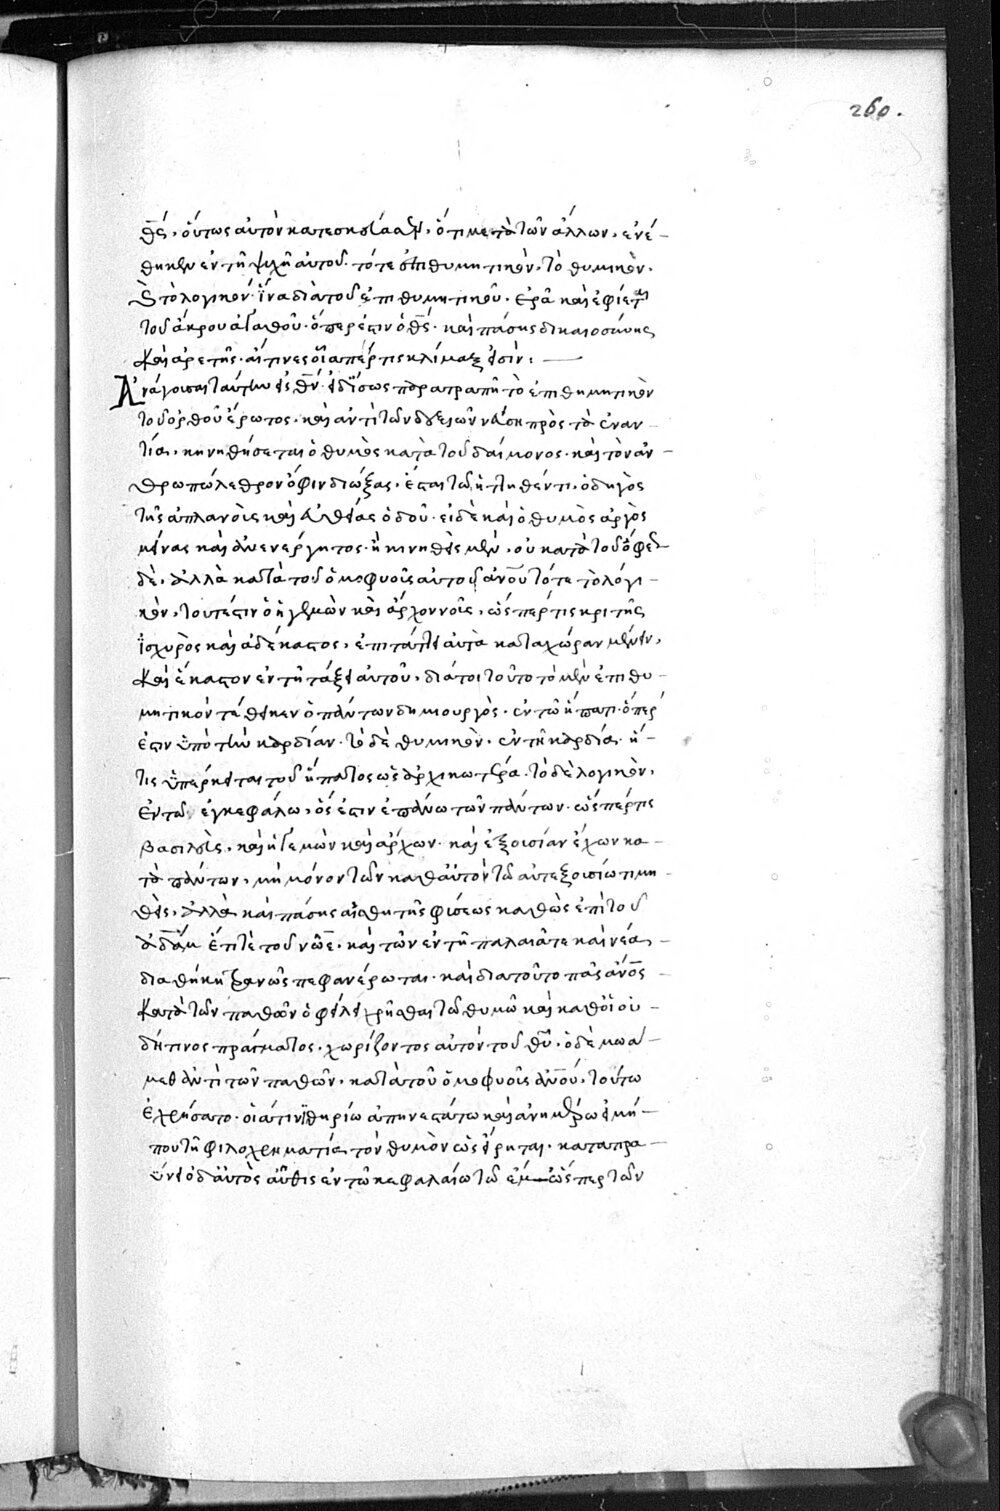 260.
θς, οὕτως αὐτὸν κατεσκεύασεν, ὅτι μετὰ τῶν ἄλλων, ἐνέ-
θηκεν ἐν τῆ ψυχῆ αὐτοῦ. τότε ἐπιθυμητικὸν, τὸ θυμικὸν.
καὶ τὸ λογικόν. ἵνα διὰ τοῦ ἐπιθυμητικοῦ. ἐρᾶ καὶ ἐφίεται
τοῦ ἄκρου ἀγαθοῦ. ὅπερ ἐστιν ὁ θς. καὶ πάσης δικαιοσύνης
καὶ ἀρετῆς. αἵτινες οἷαπέρ τις κλίμαξ εἰσίν:
Ἀνάγουσαι ταύτην εἰς θν. εἰ δἴσως παρατραπῆ τὸ ἐπιθημητικὸν
τοῦ ὀρθοῦ ἔρωτος. καὶ ἀντὶ τῶν θείων νεύση πρὸς τὰ ἐναν-
τία, κηνηθήσεται ὁ θυμὸς κατὰ τοῦ δαίμονος. καὶ τὸν ἀν-
θρωπώλεθρον ὄφιν διώξας. ἔσται τῶ ἡττηθέντι, ὁδηγὸς
τῆς ἀπλανοῦς καὶ εὐθείας ὁδοῦ. εἰ δὲ καὶ ὁ θυμὸς ἀργὸς
μείνας καὶ ἀνενέργητος. ἢ κινηθεὶς μὲν, οὐ κατὰ τοῦ ὄφεως
δὲ, ἀλλὰ κατὰ τοῦ ὁμοφυοῦς αὐτοῦ ἀνου τότε τὸ λόγι-
κὸν, τουτέστιν ὁ ἡγεμὼν καὶ ἄρχον νοῦς, ὥσπέρ τις κριτὴς
ἰσχυρὸς καὶ ἀδέκαστος, ἐπιτάττει αὐτὰ καταχώραν μένειν,
καὶ ἕκαστον ἐν τῆ τάξει αὐτοῦ. διάτοι τοῦτο τὸ μὲν ἐπιθυ-
μητικόν τέθεικεν ὁ πάντων δημιουργὸς. ἐν τῶ ἥπατι. ὅπέρ
ἐστιν ὑπὸ τὴν καρδίαν. τὸ δὲ θυμικὸν. ἐν τῆ καρδία. ἥ-
τις ὑπέρκειται τοῦ ἥπατος ὡς ἀρχικωτέρα. τὸ δὲ λογικὸν,
ἐν τῶ ἐγκεφάλω, ὅς ἐστιν ἐπάνω τῶν πάντων. ὥσπέρ τις
βασιλεὺς, καὶ ἡγεμὼν καὶ ἄρχων. καὶ ἐξουσίαν ἔχων κα-
τὰ πάντων, μὴ μόνον τῶν καθ αὑτὸν τῶ αὐτεξουσίω τιμη-
θεὶς, ἀλλὰ καὶ πάσης αἰσθητῆς φύσεως καθὼς ἐπὶ τοῦ
ἀδὰμ ἐπί τε τοῦ νῶε. καὶ τῶν ἐν τῆ παλαιᾶ τε καὶ νέα
διαθήκη τρανῶς πεφανέρωται. καὶ διατοῦτο πᾶς ἀνος
κατὰ τῶν παθῶν ὀφείλει χρῆσθαι τῶ θυμῶ καὶ καθ οἱου-
δήτινος πράγματος, χωρίζοντος αὐτὸν τοῦ θυ, ὁ δὲ μωά-
μεθ ἀντὶ τῶν παθῶν, κατὰ τοῦ ὁμοφυοῦς ἀνου, τούτω
ἐχρήσατο. οἱάτινι θηρίω ἀπηνεστάτω καὶ ἀνημέρω εἰ μή-
που τῆ φιλοχρηματία τὸν θυμὸν ὡς εἴρηται. καταπρα-
ΰνει ὁ δ αὐτὸς αὖθις ἐν τῶ κεφαλαίω τῶ ὥσπερ τῶν